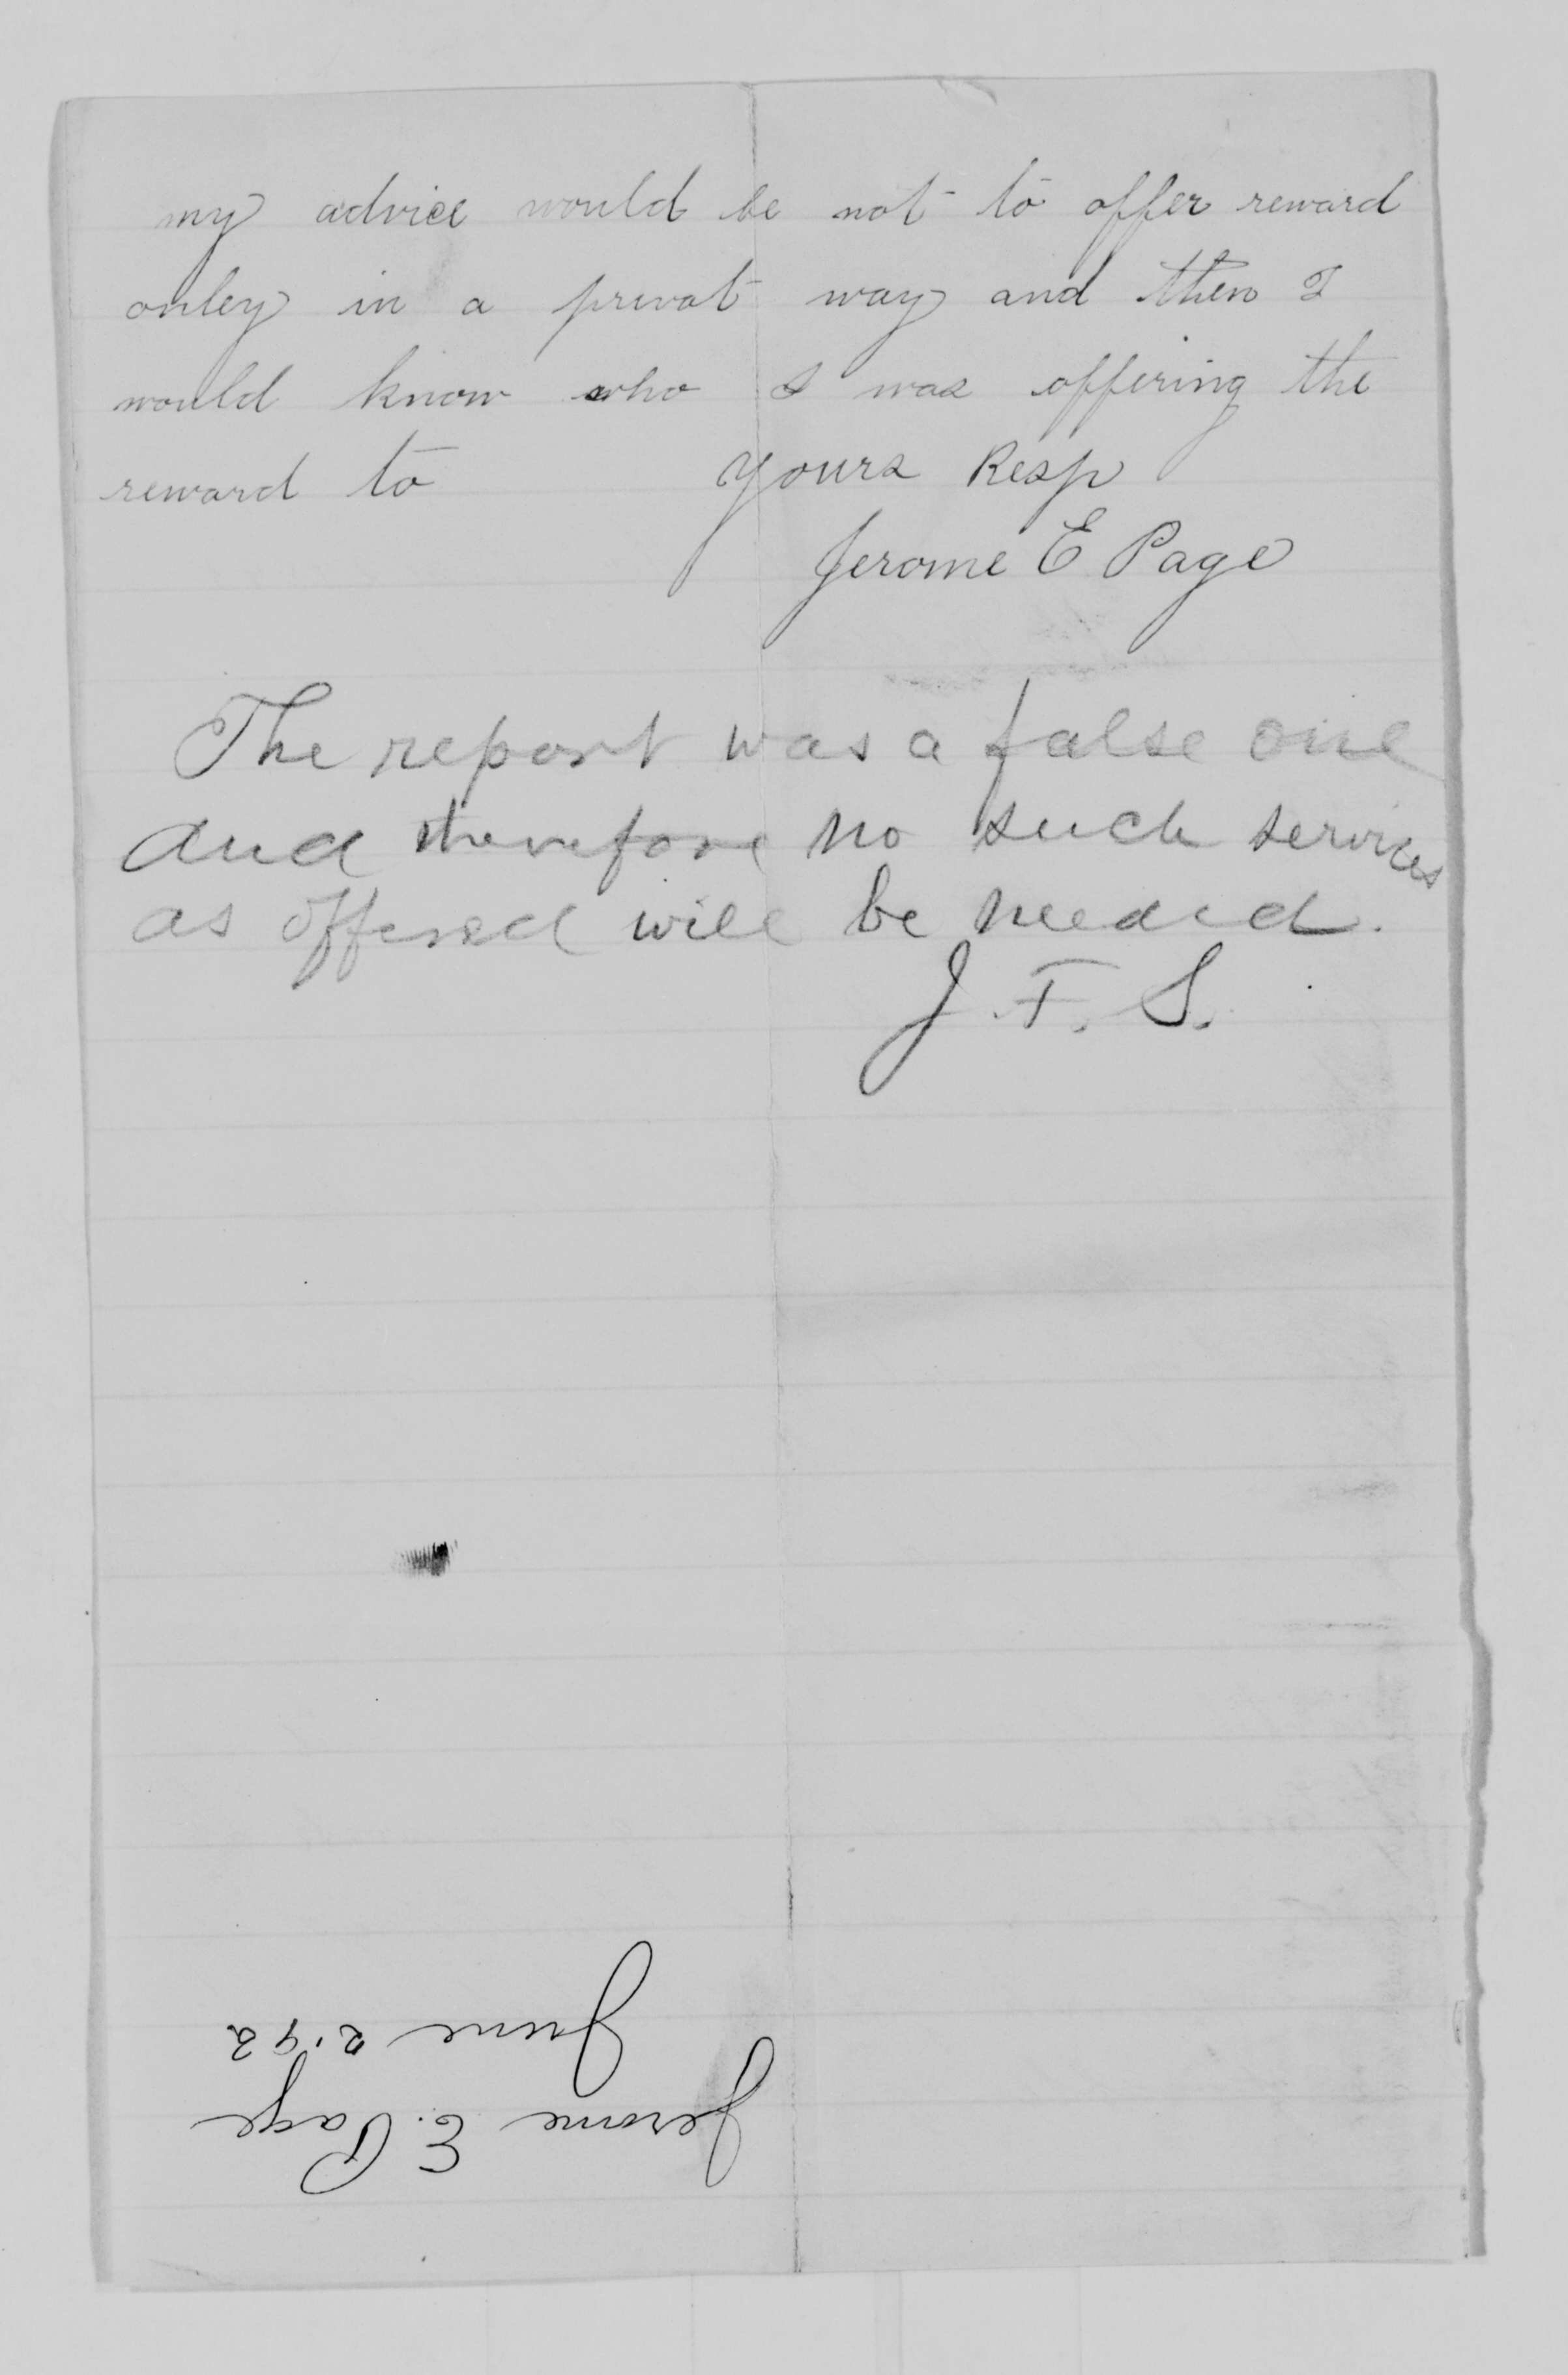 my advice would be not to offer reward
onley in a privat way and then I
would know who I was offering the
reward to Yours Resp
Jerome E Page
The report was a false one
and therefore no such services
as offered will be needed.
J. F. S.
Jerome E. Page
June 2. 92